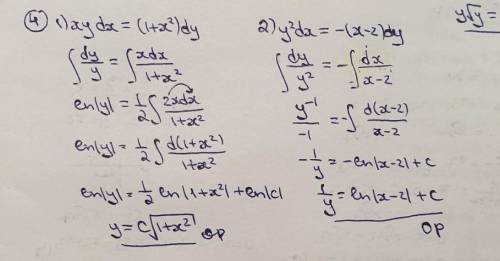 ④ 1) xy dx = (1+x²)dy
∫ dy/y = ∫ xdx/(1+x²)
ln|y| = 1/2 ∫ 2xdx/(1+x²)
ln|y| = 1/2 ∫ d(1+x²)/(1+x²)
ln|y| = 1/2 ln|1+x²| + ln|C|
y = C√(1+x²) OP
2) y²dx = -(x-2)dy
∫ dy/y² = -∫ dx/(x-2)
y⁻¹/-1 = -∫ d(x-2)/(x-2)
-1/y = -ln|x-2| + C
1/y = ln|x-2| + C
OP
y√y =